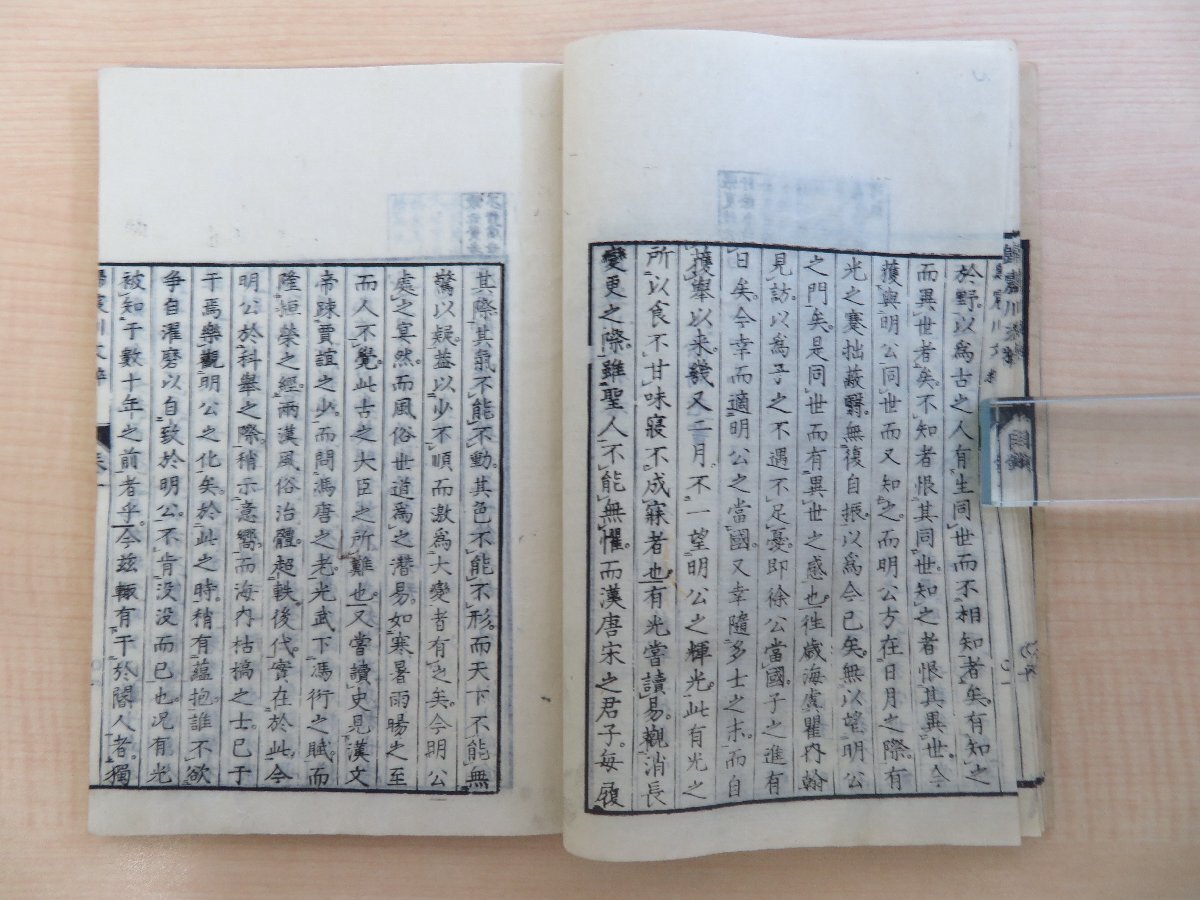 於野以爲古之人有生同世而不相知者矣有知之
而異世者矣不知者恨其同世知之者恨其異世今
獲與明公同世而又知之而明公方在日月之際有
光之蹇拙蔽爵無復自振以爲今已矣無以望明公
之門矣是同世而有異世之感也徃歲海虞瞿内翰
見訪以爲子之不遇不足憂即徐公當國子之進有
日矣今幸而適明公之當國又幸隨多士之末而自
獲擧以来幾又二月不一望明公之輝光此有光之
所以食不甘味寢不成寐者也有光嘗讀易觀消長
變更之際雖聖人不能無懼而漢唐宋之君子每履
其際其氣不能不動其色不能不形而天下不能無
驚以疑益以少不順而激爲大變者有之矣今明公
處之冥然而風俗世道爲之潜易如寒暑雨暘之至
而人不覺此古之大臣之所難也又嘗讀史見漢文
帝疎賈誼之少而問馮唐之老光武下馮衍之賦而
隆桓榮之經兩漢風俗治體超軼後代實在於此今
明公於科擧之際稍示意嚮而海内枯槁之士已于
于焉樂觀明公之化矣於此之時稍有蘊抱誰不欲
争自濯磨以自致於明公不肯没没而已也况有光
被知于數十年之前者乎今兹輙有干於閽人者獨
歸震川文粹
卷一